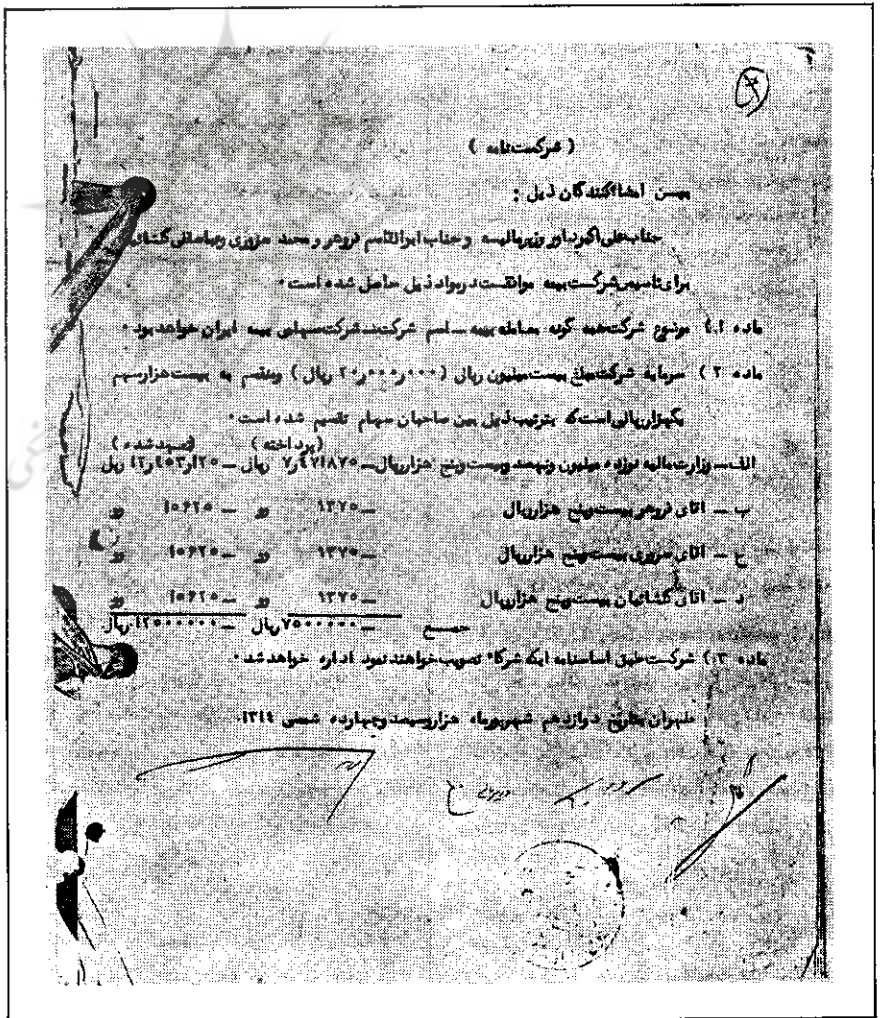 ( شرکت‌نامه )
بین امضاکنندگان ذیل :
جناب علی اکبر داور وزیر مالیه و جناب ابوالقاسم فروهر و محمد سروری و عباسقلی گلشائیان
برای تاسیس شرکت بیمه موافقت در مواد ذیل حاصل شده است .
ماده ۱) موضوع شرکت همه گونه معامله بیمه ــ اسم شرکت ــ شرکت سهامی بیمه ایران خواهد بود .
ماده ۲ ) سرمایه شرکت مبلغ بیست میلیون ریال ( ۲۰ر۰۰۰ر۰۰۰ ریال ) ومنقسم به بیست هزار سهم
یکهزار ریالی است که بترتیب ذیل بین صاحبان سهام تقسیم شده است .
(پرداخته ) (تعهد شده )
الف ــ وزارت مالیه نوزده میلیون ونهصد وبیست وپنج هزار ریال ــ ۷ر۴۷۱۸۷۵ ریال ــ ۱۲ر۴۵۳ر۱۲۵ ریال
ب ــ آقای فروهر بیست وپنج هزار ریال ــ ۱۳۷۵ رر ــ ۱۵۶۲۵ رر
ج ــ آقای سروری بیست وپنج هزار ریال ــ ۱۳۷۵ رر ــ ۱۵۶۲۵ رر
د ــ آقای گلشائیان بیست وپنج هزار ریال ــ ۱۳۷۵ رر ــ ۱۵۶۲۵ رر
جمع ــ ۷۵۰۰۰۰۰ ریال ــ ۱۲۵۰۰۰۰۰ ریال
ماده ۳) شرکت طبق اساسنامه ایکه شرکاء تصویب خواهند نمود اداره خواهد شد .
طهران بتاریخ دوازدهم شهریورماه هزار و سیصد وچهارده شمسی ۱۳۱۴.